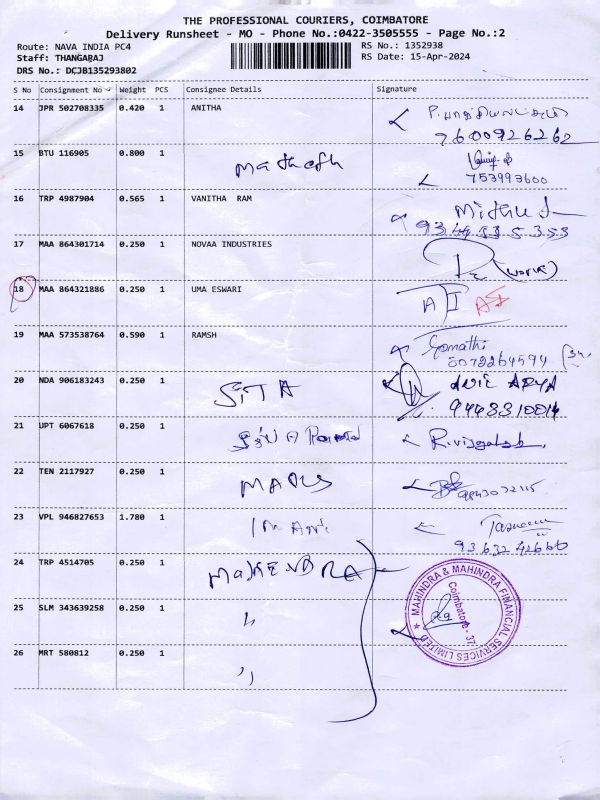 THE PROFESSIONAL COURIERS, COIMBATORE
Delivery Runsheet - MO - Phone No.:0422-3505555 - Page No.:2
Route: NAVA INDIA PC4
RS No.: 1352938
Staff: THANGARAJ
RS Date: 15-Apr-2024
DRS No.: DCJB135293802
S No Consignment No Weight PCS Consignee Details Signature
14 JPR 502708335 0.420 1 ANITHA
7600926262
15 BTU 116905 0.800 1
753993600
16 TRP 4987904 0.565 1 VANITHA RAM
93 44 53 5 353
17 MAA 864301714 0.250 1 NOVAA INDUSTRIES
(work)
18 MAA 864321886 0.250 1 UMA ESWARI
19 MAA 573538764 0.590 1 RAMSH Gomathi
8072264594
20 NDA 906183243 0.250 1 SITA
ARYA
21 UPT 6067618 0.250 1
22 TEN 2117927 0.250 1
23 VPL 946827653 1.780 1
93632 42660
24 TRP 4514705 0.250 1 MAHENDRA
25 SLM 343639258 0.250 1 "
26 MRT 580812 0.250 1 "
MAHINDRA & MAHINDRA FINANCIAL SERVICES LIMITED
Coimbatore - 37